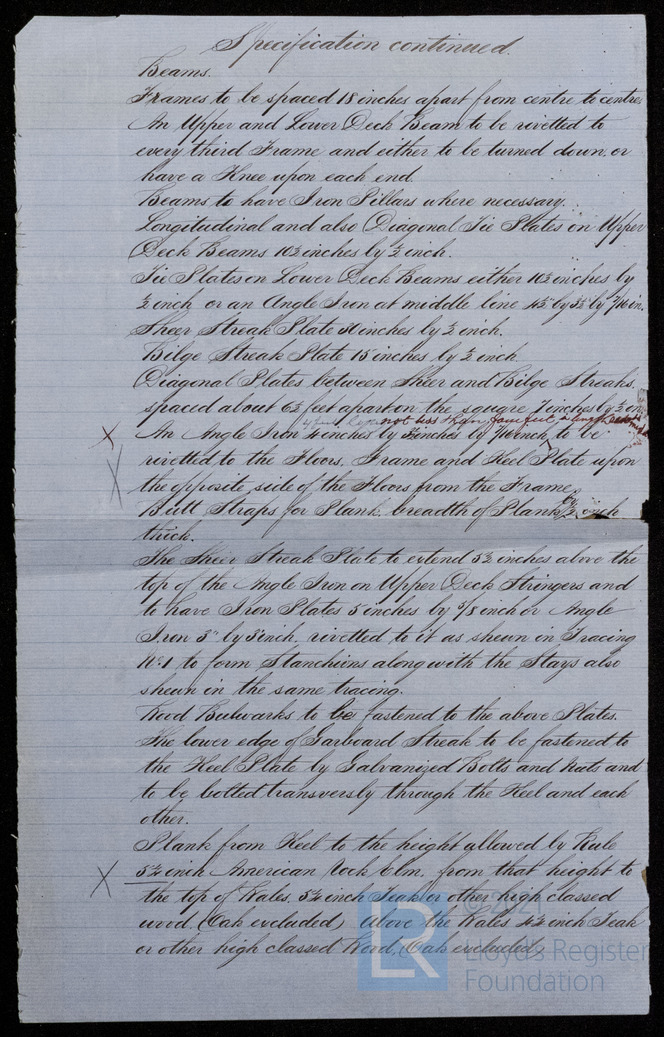 Specification continued.
Beams.
Frames to be spaced 18 inches apart from centre to centre
An Upper and Lower Deck Beam to be rivetted to
every third Frame and either to be turned down, or
have a Knee upon each end.
Beams to have Iron Pillars where necessary.
Longitudinal and also Diagonal Tie Plates on Upper
Deck Beams 10½ inches by ½ inch.
Tie Plates on Lower Deck Beams either 10½ inches by
½ inch or an Angle Iron at middle line by 7/16 in.
Sheer Streak Plate 30 inches by ½ inch.
Bilge Streak Plate 15 inches by ½ inch
Diagonal Plates between Sheer and Bilge Streaks
spaced about 6½ feet apart on the square 7 inches by ½ in
not less than four feet in length
X An Angle Iron 4 inches by inches by 7/16 inch, to be
X rivetted to the Floors, Frame and Keel Plate upon
the opposite side of the Floors from the Frame
Butt Straps for Plank, breadth of Plank by ½ inch
thick.
The Sheer Streak Plate to extend 5½ inches above the
top of the Angle Iron on Upper Deck Stringers and
to have Iron Plates 5 inches by 5/8 inch or Angle
Iron 3" by 3 inch, rivetted to it as shewn in Tracing
No. 1 to form Stanchions along with the Stays also
shewn in the same tracing.
Wood Bulwarks to be fastened to the above Plates.
The lower edge of Garboard Streak to be fastened to
the Keel Plate by Galvanized Bolts and Nuts and
to be bolted transversly through the Keel and each
other.
Plank from Keel to the height allowed by Rule
X 5¼ inch American Rock Elm, from that height to
the top of Wales, 5¼ inch Teak or other high classed
wood, (Oak excluded) Above the Wales 4½ inch Teak
or other high classed Wood, (Oak excluded)
© 2021
LR
Lloyd's Register
Foundation